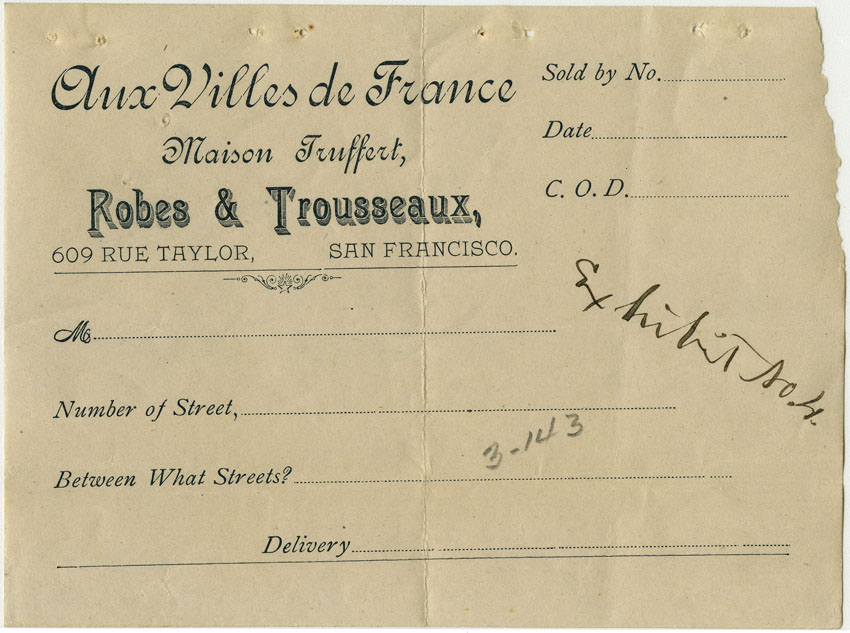 Aux Villes de France
Maison Truffert,
Robes & Trousseaux,
609 RUE TAYLOR, SAN FRANCISCO.
Sold by No.
Date
C. O. D.
Exhibit No. 4.
M
Number of Street,
3-143
Between What Streets?
Delivery